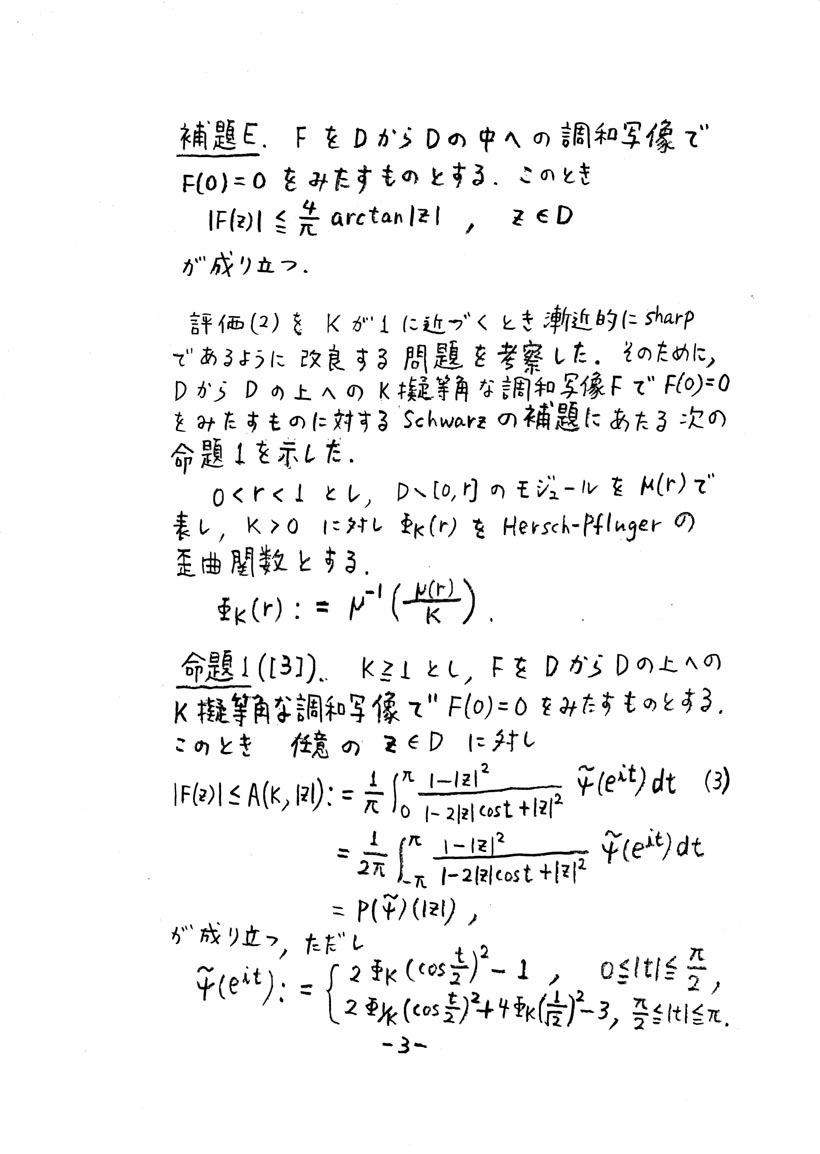 補題E. FをDからDの中への調和写像で
F(0)=0 をみたすものとする. このとき
|F(z)| ≦ 4/π arctan|z| , z ∈ D
が成り立つ.
評価(2)を Kが1に近づくとき漸近的にsharp
であるように改良する問題を考察した. そのために,
DからDの上へのK擬等角な調和写像FでF(0)=0
をみたすものに対するSchwarzの補題にあたる次の
命題1を示した.
0<r<1 とし, D∖[0,r]のモジュールをμ(r)で
表し, K>0 に対しΦ_K(r)をHersch-Pflugerの
歪曲関数とする.
Φ_K(r) := μ^{-1}(μ(r)/K).
命題1([3]). K≧1とし, FをDからDの上への
K擬等角な調和写像でF(0)=0をみたすものとする.
このとき 任意のz∈Dに対し
|F(z)| ≤ A(K,|z|) := 1/π ∫_0^π (1-|z|^2)/(1-2|z|cos t+|z|^2) ψ̃(e^{it})dt (3)
= 1/2π ∫_{-π}^π (1-|z|^2)/(1-2|z|cos t+|z|^2) ψ̃(e^{it})dt
= P(ψ̃)(|z|),
が成り立つ, ただし
ψ̃(e^{it}) := { 2Φ_K(cos t/2)^2-1, 0≦|t|≦π/2,
2Φ_{1/K}(cos t/2)^2+4Φ_K(1/√2)^2-3, π/2≦|t|≦π.
-3-